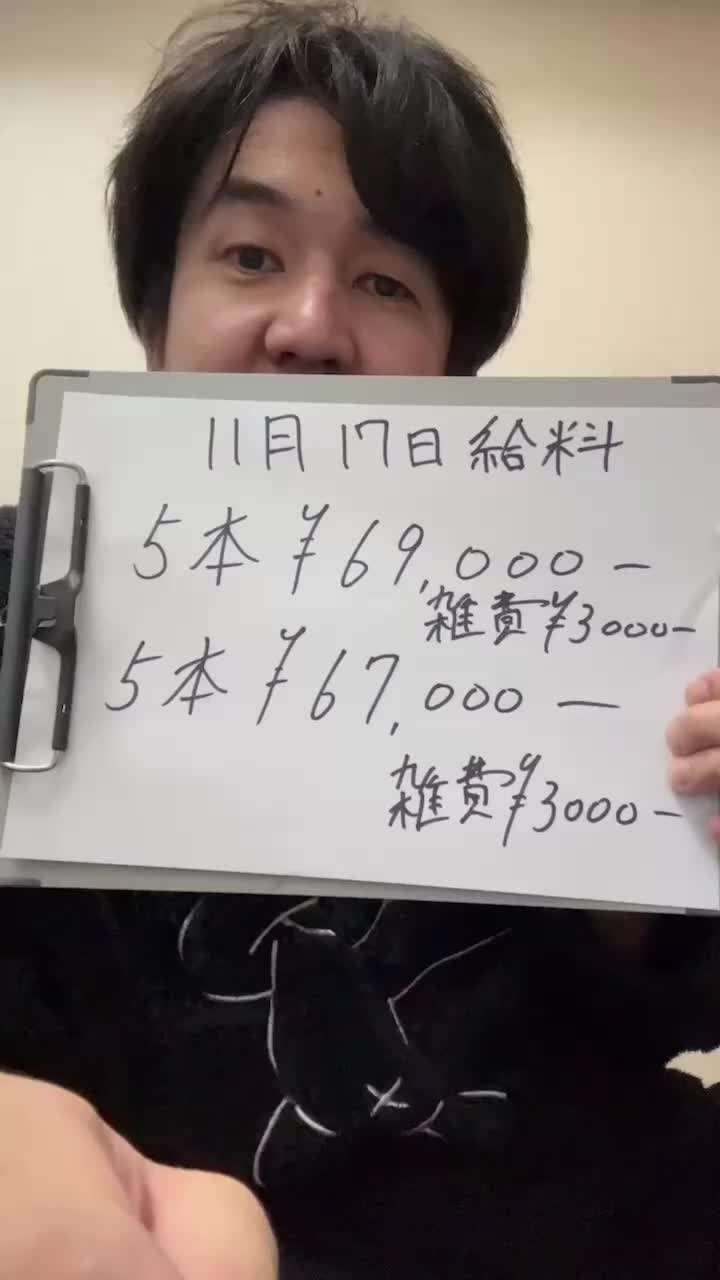 11月17日給料
5本 ¥69,000−
雑費¥3000−
5本 ¥67,000−
雑費¥3000−